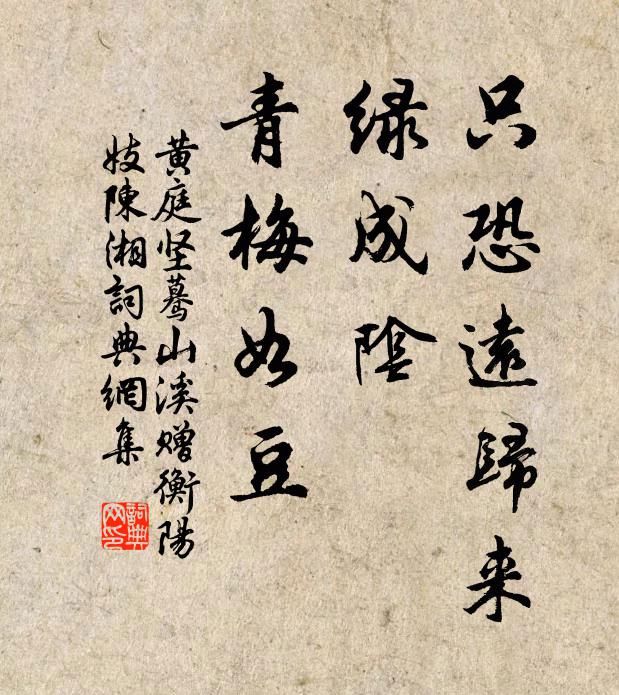 只恐遠歸来
绿成陰
青梅如豆
黄庭坚蓦山溪赠衡陽
妓陳湘詞典網集
詞典
网印